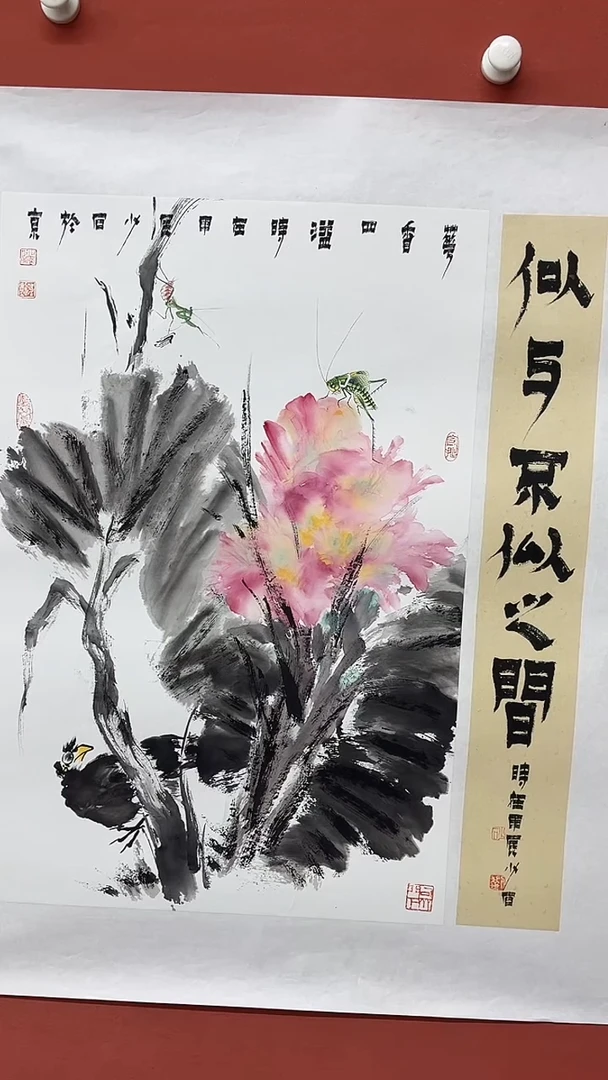 香四溢時在甲辰少石於京
似与不似之間
時在甲辰少石